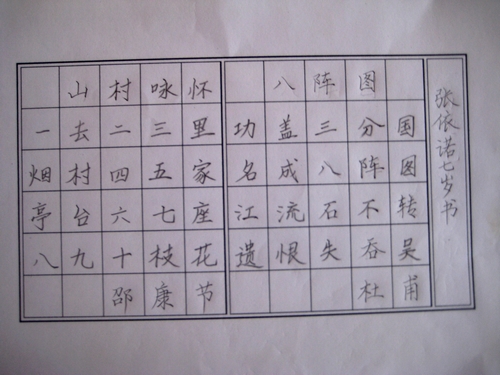 山村咏怀
一去二三里
烟村四五家
亭台六七座
八九十枝花
邵康节
八阵图
功盖三分国
名成八阵图
江流石不转
遗恨失吞吴
杜甫
张依诺七岁书